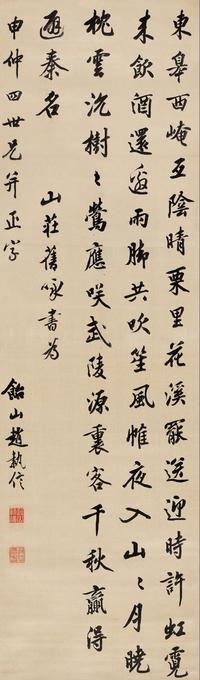 東皋西崦互陰晴栗里花溪罷送迎時許虹霓
來飲酒還邀雨腳共吹笙風帷夜入山〻月曉
枕雲沉樹〻鶯應咲武陵源裏客千秋贏得
避秦名 山莊舊咏書為
申仲四世兄并正字
飴山趙執信